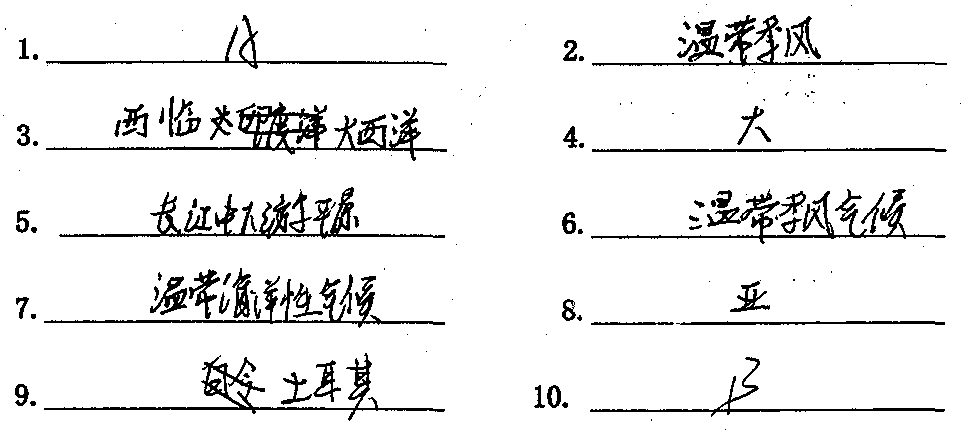 1. 2. 温带季风
3. 西临大西洋 4. 大
5. 长江中下游平原 6. 温带季风气候
7. 温带海洋性气候 8. 亚
9. 土耳其 10. B